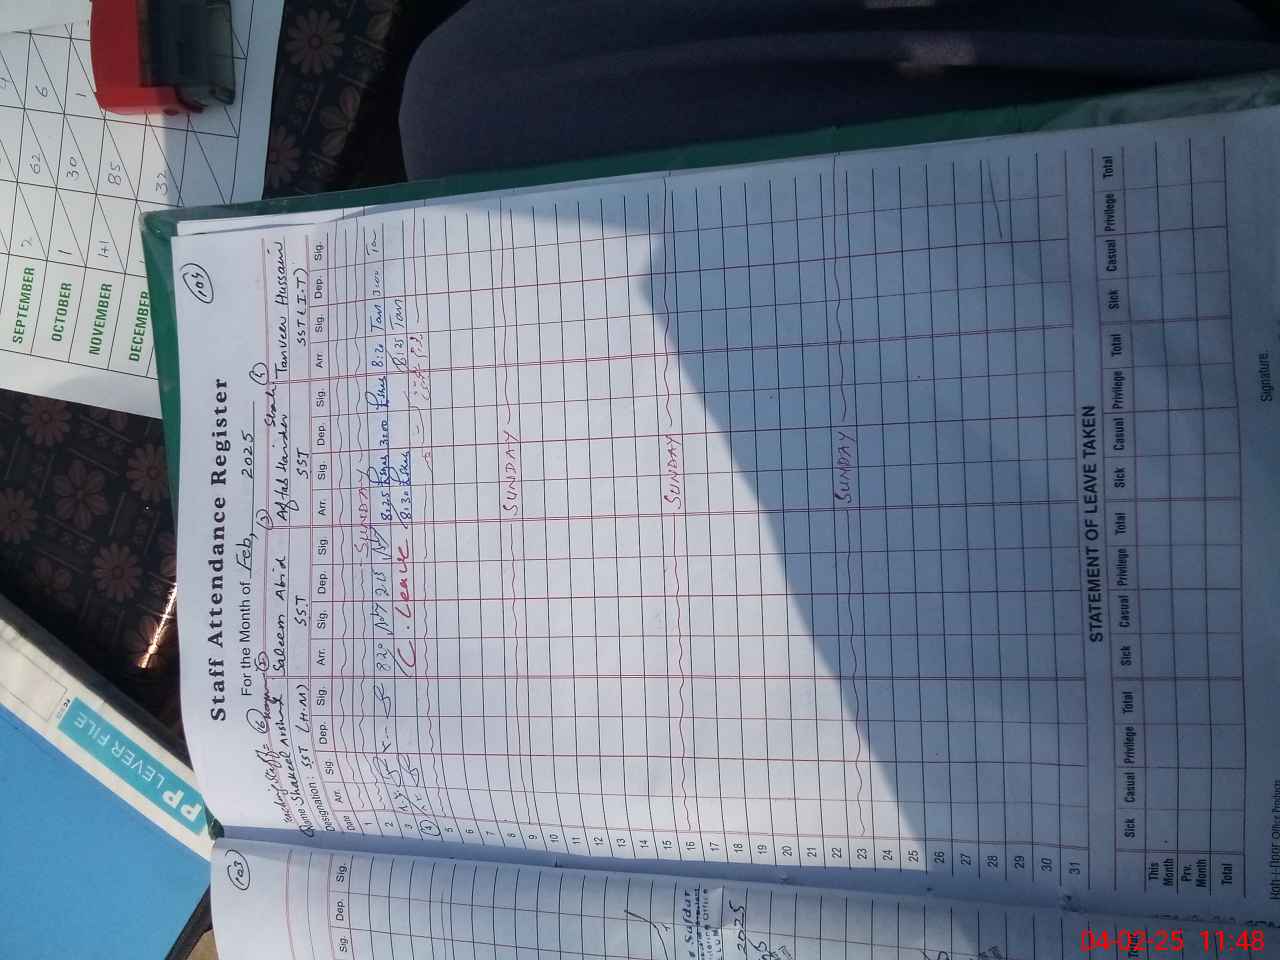 104
Staff Attendance Register
For the Month of Feb, 2025
Teaching Staff = 6
Name Shakeel Arshad 2 Saleem Abid 3 Aftab Haider Shah 4 Tanveer Hussain
Designation: SST (H.M) SST SST SST (I.T)
Date Arr. Sig. Dep. Sig. Arr. Sig. Dep. Sig. Arr. Sig. Dep. Sig. Arr. Sig. Dep. Sig.
1
2 SUNDAY
3 820 2:15 8:25 3:00 8:20 Tan 3:00 Tan
4 C. Leave 8:30 8:25 Tan
5
6
7
8
9 SUNDAY
10
11
12
13
14
15
16 SUNDAY
17
18
19
20
21
22
23 SUNDAY
24
25
26
27
28
29
30
31
STATEMENT OF LEAVE TAKEN
Sick Casual Privilege Total Sick Casual Privilege Total Sick Casual Privilege Total Sick Casual Privilege Total
This Month
Prv. Month
Total
Signature.
103
Sig. Dep. Sig.
Safdar
2025
SEPTEMBER 2 62 6
OCTOBER 1 30 1
NOVEMBER 1+1 85
DECEMBER 32
PP LEVER FILE
04-02-25 11:48